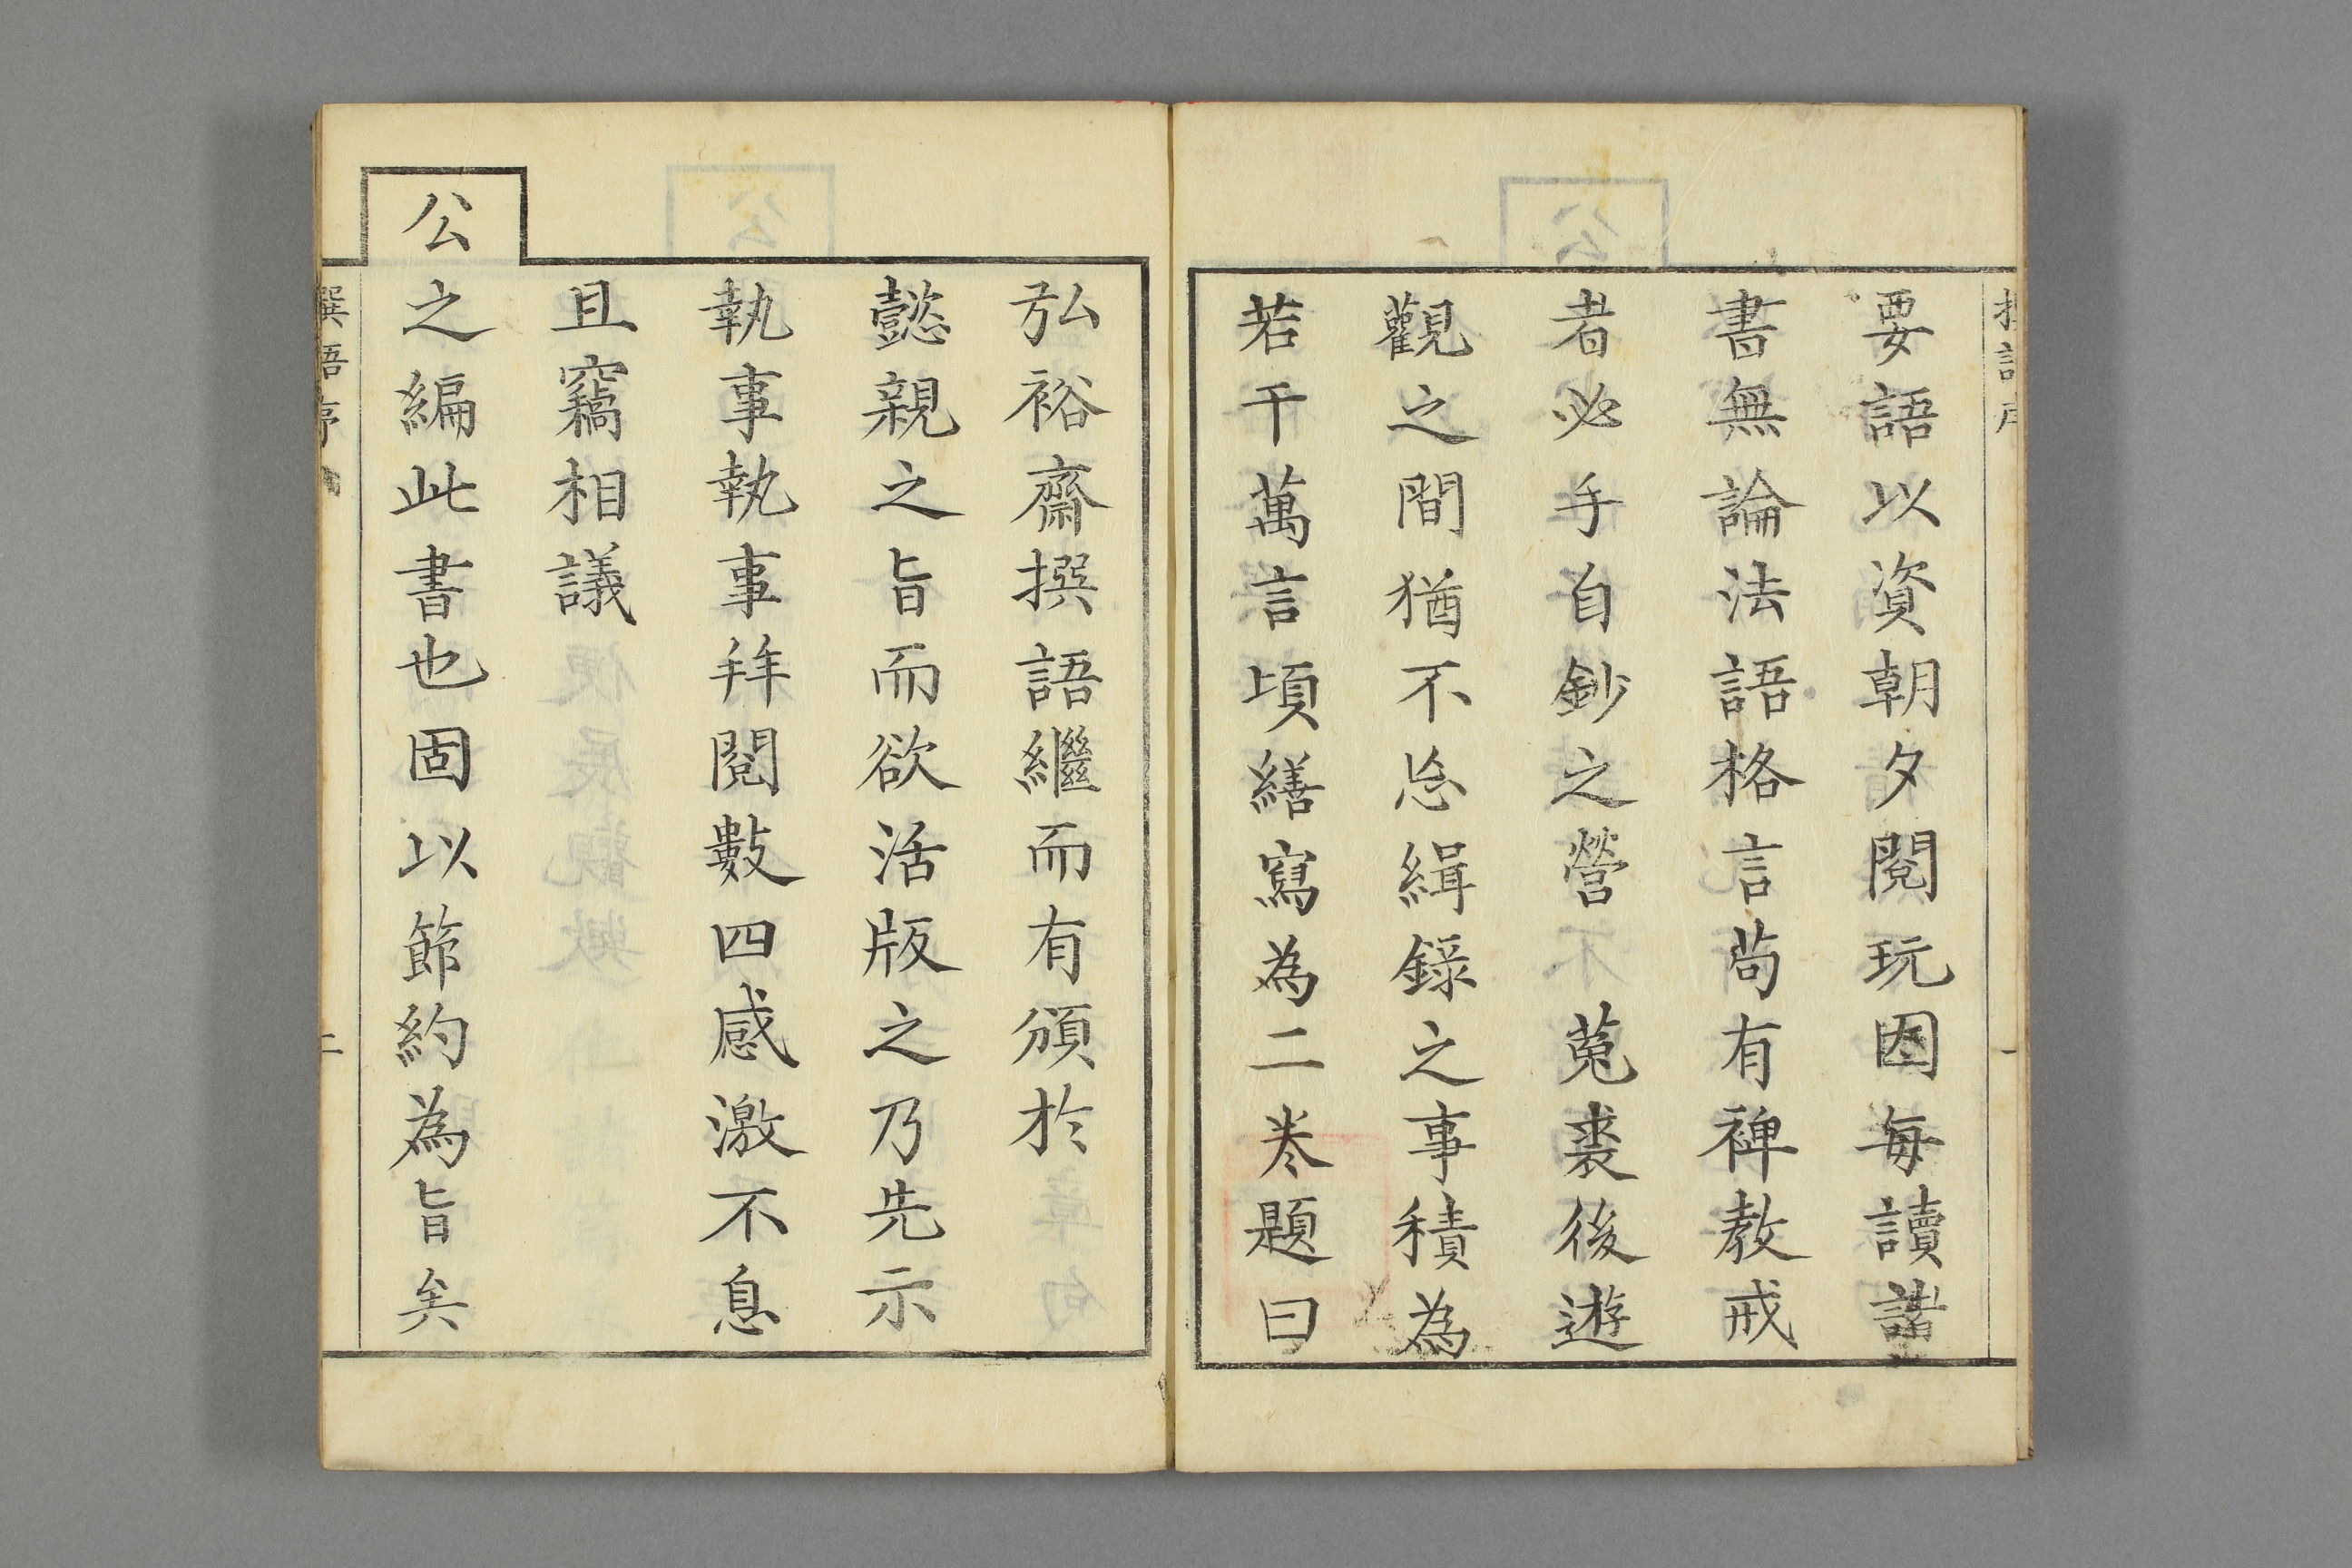 要語以資朝夕閱玩因每讀諸
書無論法語格言苟有裨教戒
者必手自鈔之營不 菟裘後遊
觀之間猶不忘緝錄之事積為
若干萬言頃繕寫為二卷題曰
弘裕齋撰語繼而有頒於
懿親之旨而欲活版之乃先示
執事執事拜閱數四感激不息
且竊相議
公
之編此書也固以節約為旨矣
撰語序
二